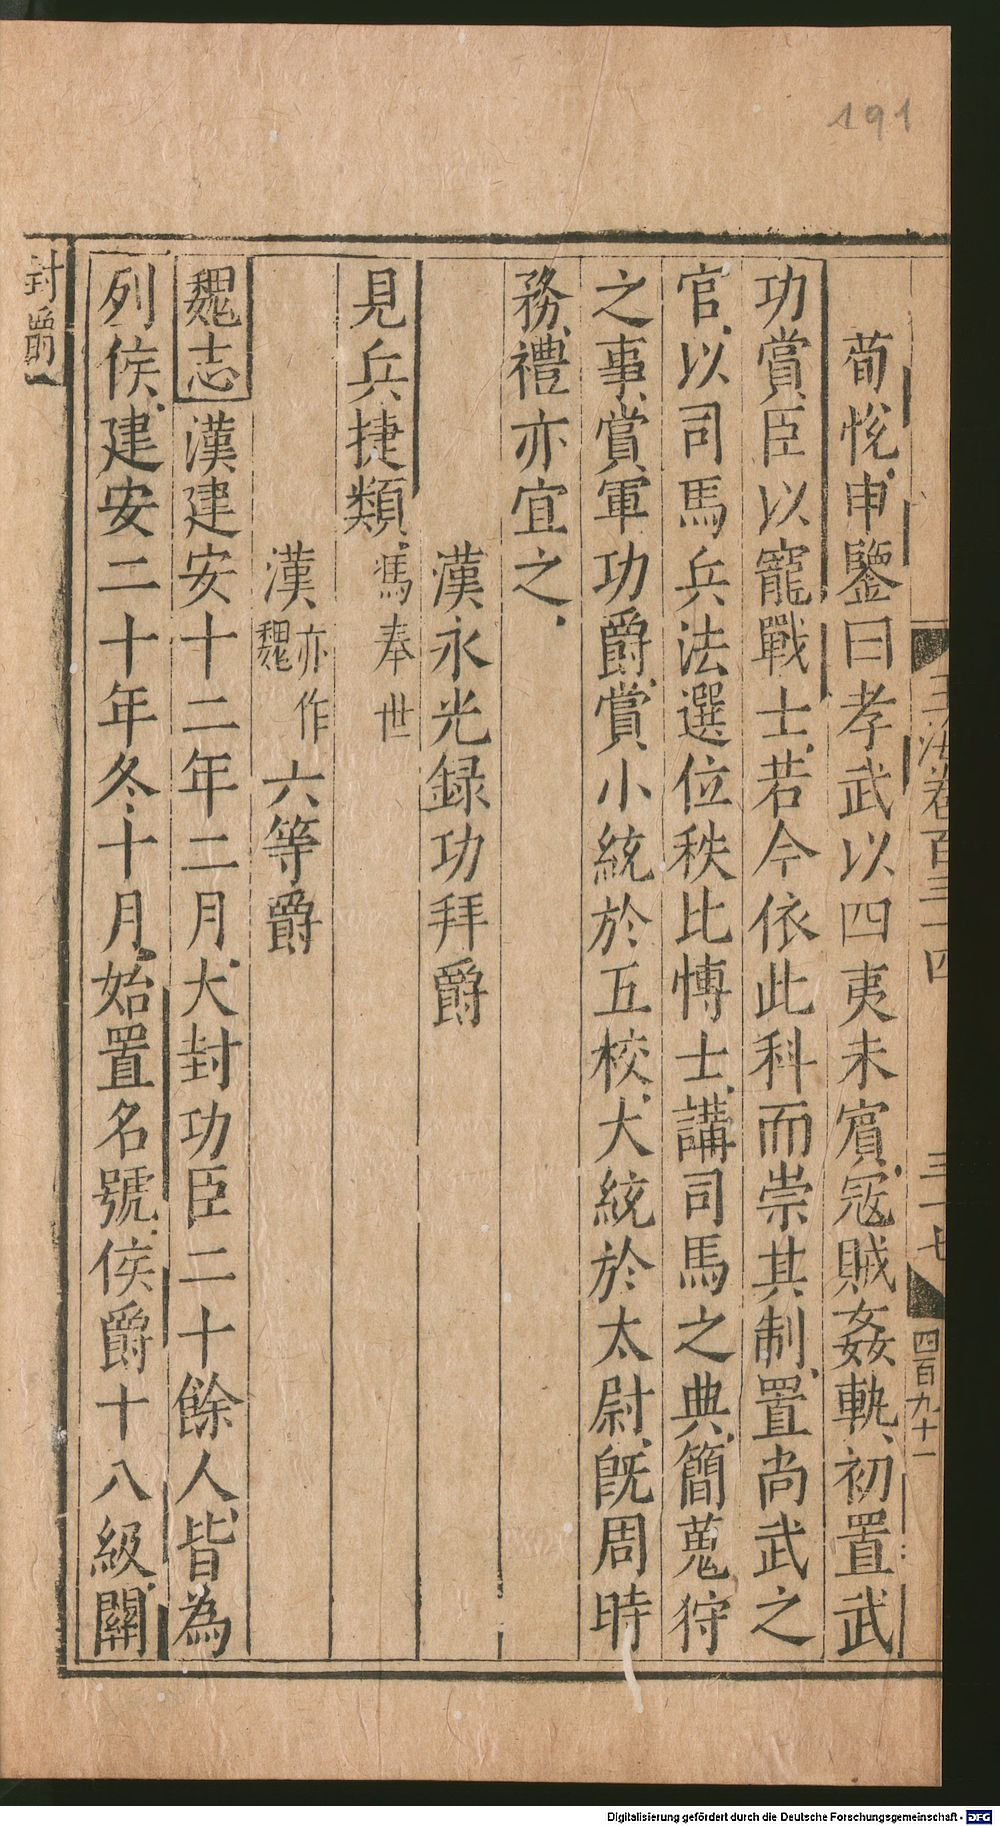 191
玉海卷百三十四
三十七
四百九十一
荀悅申鑒曰孝武以四夷未賓寇賊姦軌初置武
功賞臣以寵戰士若今依此科而崇其制置尚武之
官以司馬兵法選位秩比博士講司馬之典簡蒐狩
之事賞軍功爵賞小統於五校大統於太尉既周時
務禮亦宜之
漢永光錄功拜爵
見兵捷類馮奉世
漢亦作魏六等爵
魏志漢建安十二年二月大封功臣二十餘人皆為
列侯建安二十年冬十月始置名號侯爵十八級關
封爵
Digitalisierung gefördert durch die Deutsche Forschungsgemeinschaft - DFG